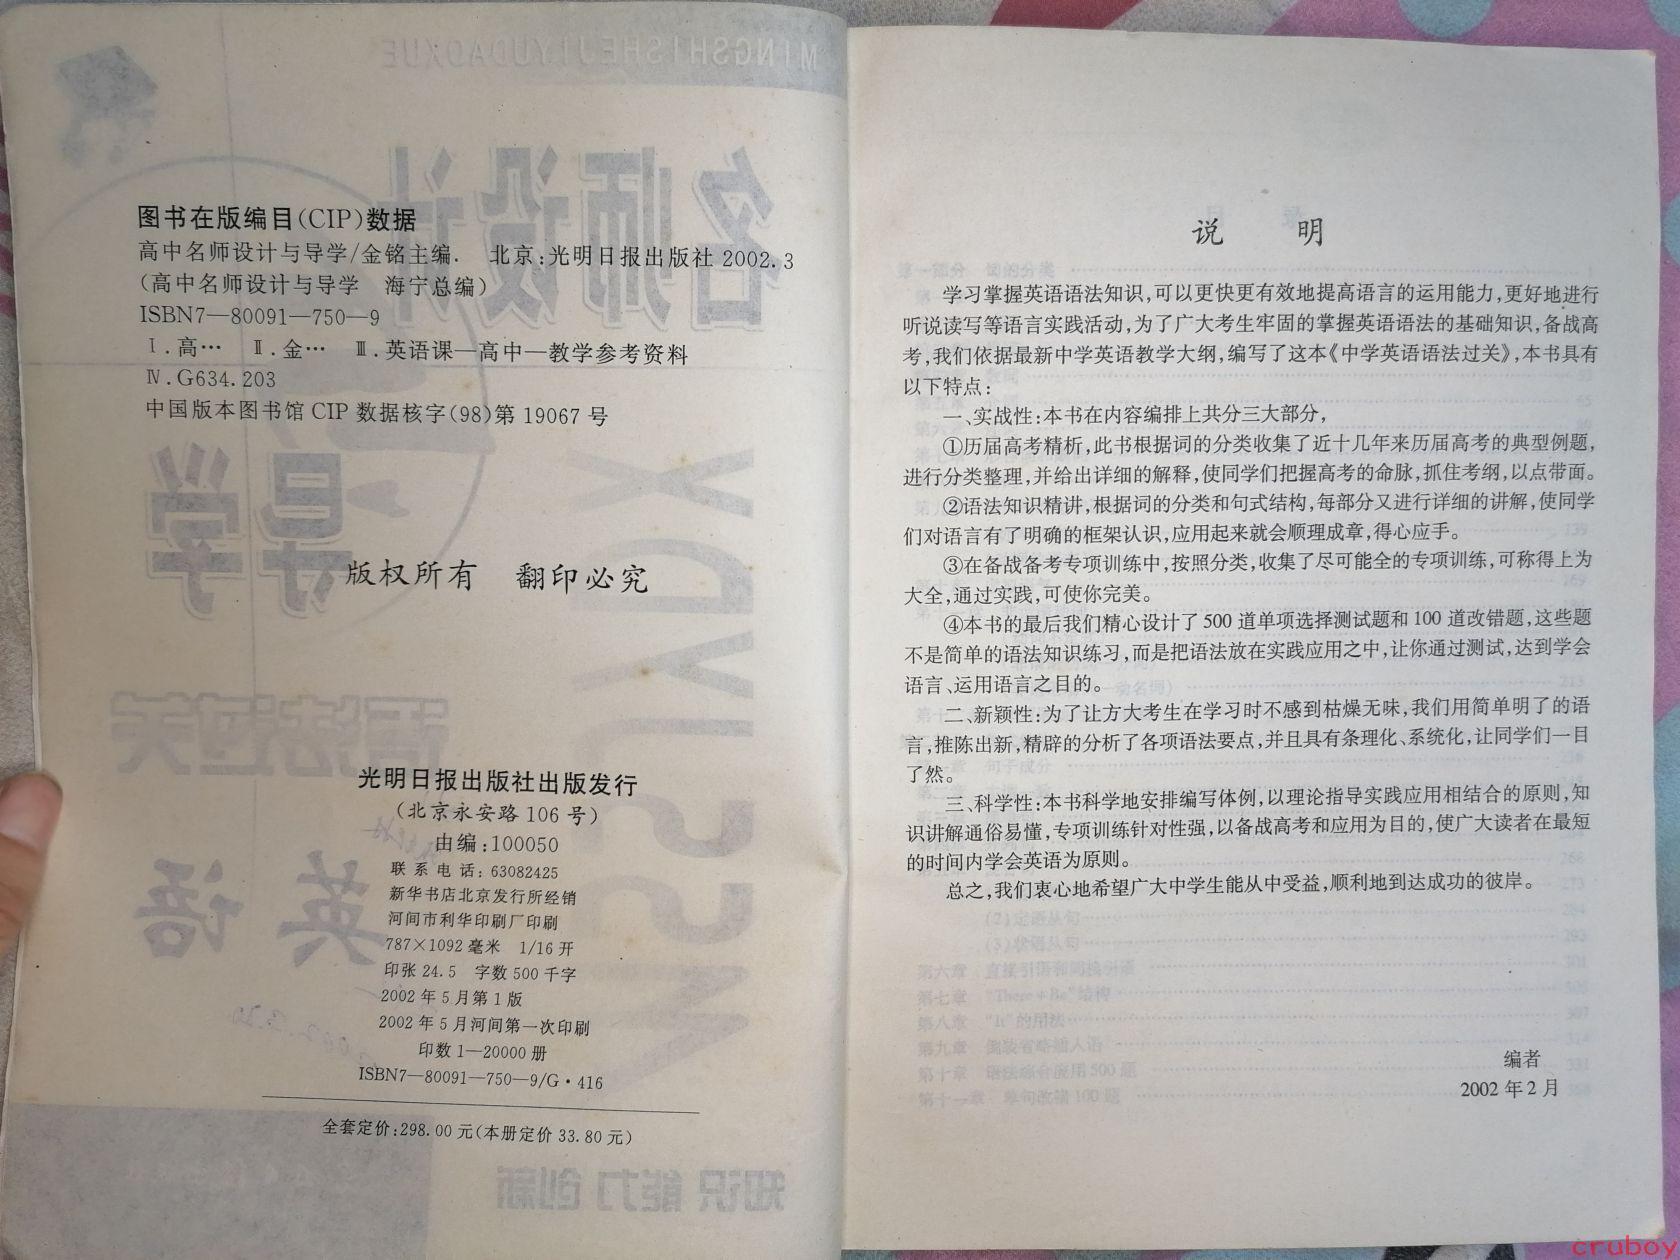 图书在版编目(CIP)数据
高中名师设计与导学/金铭主编. 北京:光明日报出版社 2002.3
(高中名师设计与导学 海宁总编)
ISBN7—80091—750—9
Ⅰ.高… Ⅱ.金… Ⅲ.英语课—高中—教学参考资料
Ⅳ.G634.203
中国版本图书馆 CIP 数据核字(98)第 19067 号
版权所有 翻印必究
光明日报出版社出版发行
(北京永安路 106 号)
由编:100050
联系电话:63082425
新华书店北京发行所经销
河间市利华印刷厂印刷
787×1092 毫米 1/16 开
印张 24.5 字数 500 千字
2002 年 5 月第 1 版
2002 年 5 月河间第一次印刷
印数 1—20000 册
ISBN7—80091—750—9/G·416
全套定价:298.00 元(本册定价 33.80 元)
说 明
学习掌握英语语法知识,可以更快更有效地提高语言的运用能力,更好地进行
听说读写等语言实践活动,为了广大考生牢固的掌握英语语法的基础知识,备战高
考,我们依据最新中学英语教学大纲,编写了这本《中学英语语法过关》,本书具有
以下特点:
一、实战性:本书在内容编排上共分三大部分,
①历届高考精析,此书根据词的分类收集了近十几年来历届高考的典型例题,
进行分类整理,并给出详细的解释,使同学们把握高考的命脉,抓住考纲,以点带面。
②语法知识精讲,根据词的分类和句式结构,每部分又进行详细的讲解,使同学
们对语言有了明确的框架认识,应用起来就会顺理成章,得心应手。
③在备战备考专项训练中,按照分类,收集了尽可能全的专项训练,可称得上为
大全,通过实践,可使你完美。
④本书的最后我们精心设计了 500 道单项选择测试题和 100 道改错题,这些题
不是简单的语法知识练习,而是把语法放在实践应用之中,让你通过测试,达到学会
语言、运用语言之目的。
二、新颖性:为了让方大考生在学习时不感到枯燥无味,我们用简单明了的语
言,推陈出新,精辟的分析了各项语法要点,并且具有条理化、系统化,让同学们一目
了然。
三、科学性:本书科学地安排编写体例,以理论指导实践应用相结合的原则,知
识讲解通俗易懂,专项训练针对性强,以备战高考和应用为目的,使广大读者在最短
的时间内学会英语为原则。
总之,我们衷心地希望广大中学生能从中受益,顺利地到达成功的彼岸。
编者
2002 年 2 月
cruboy